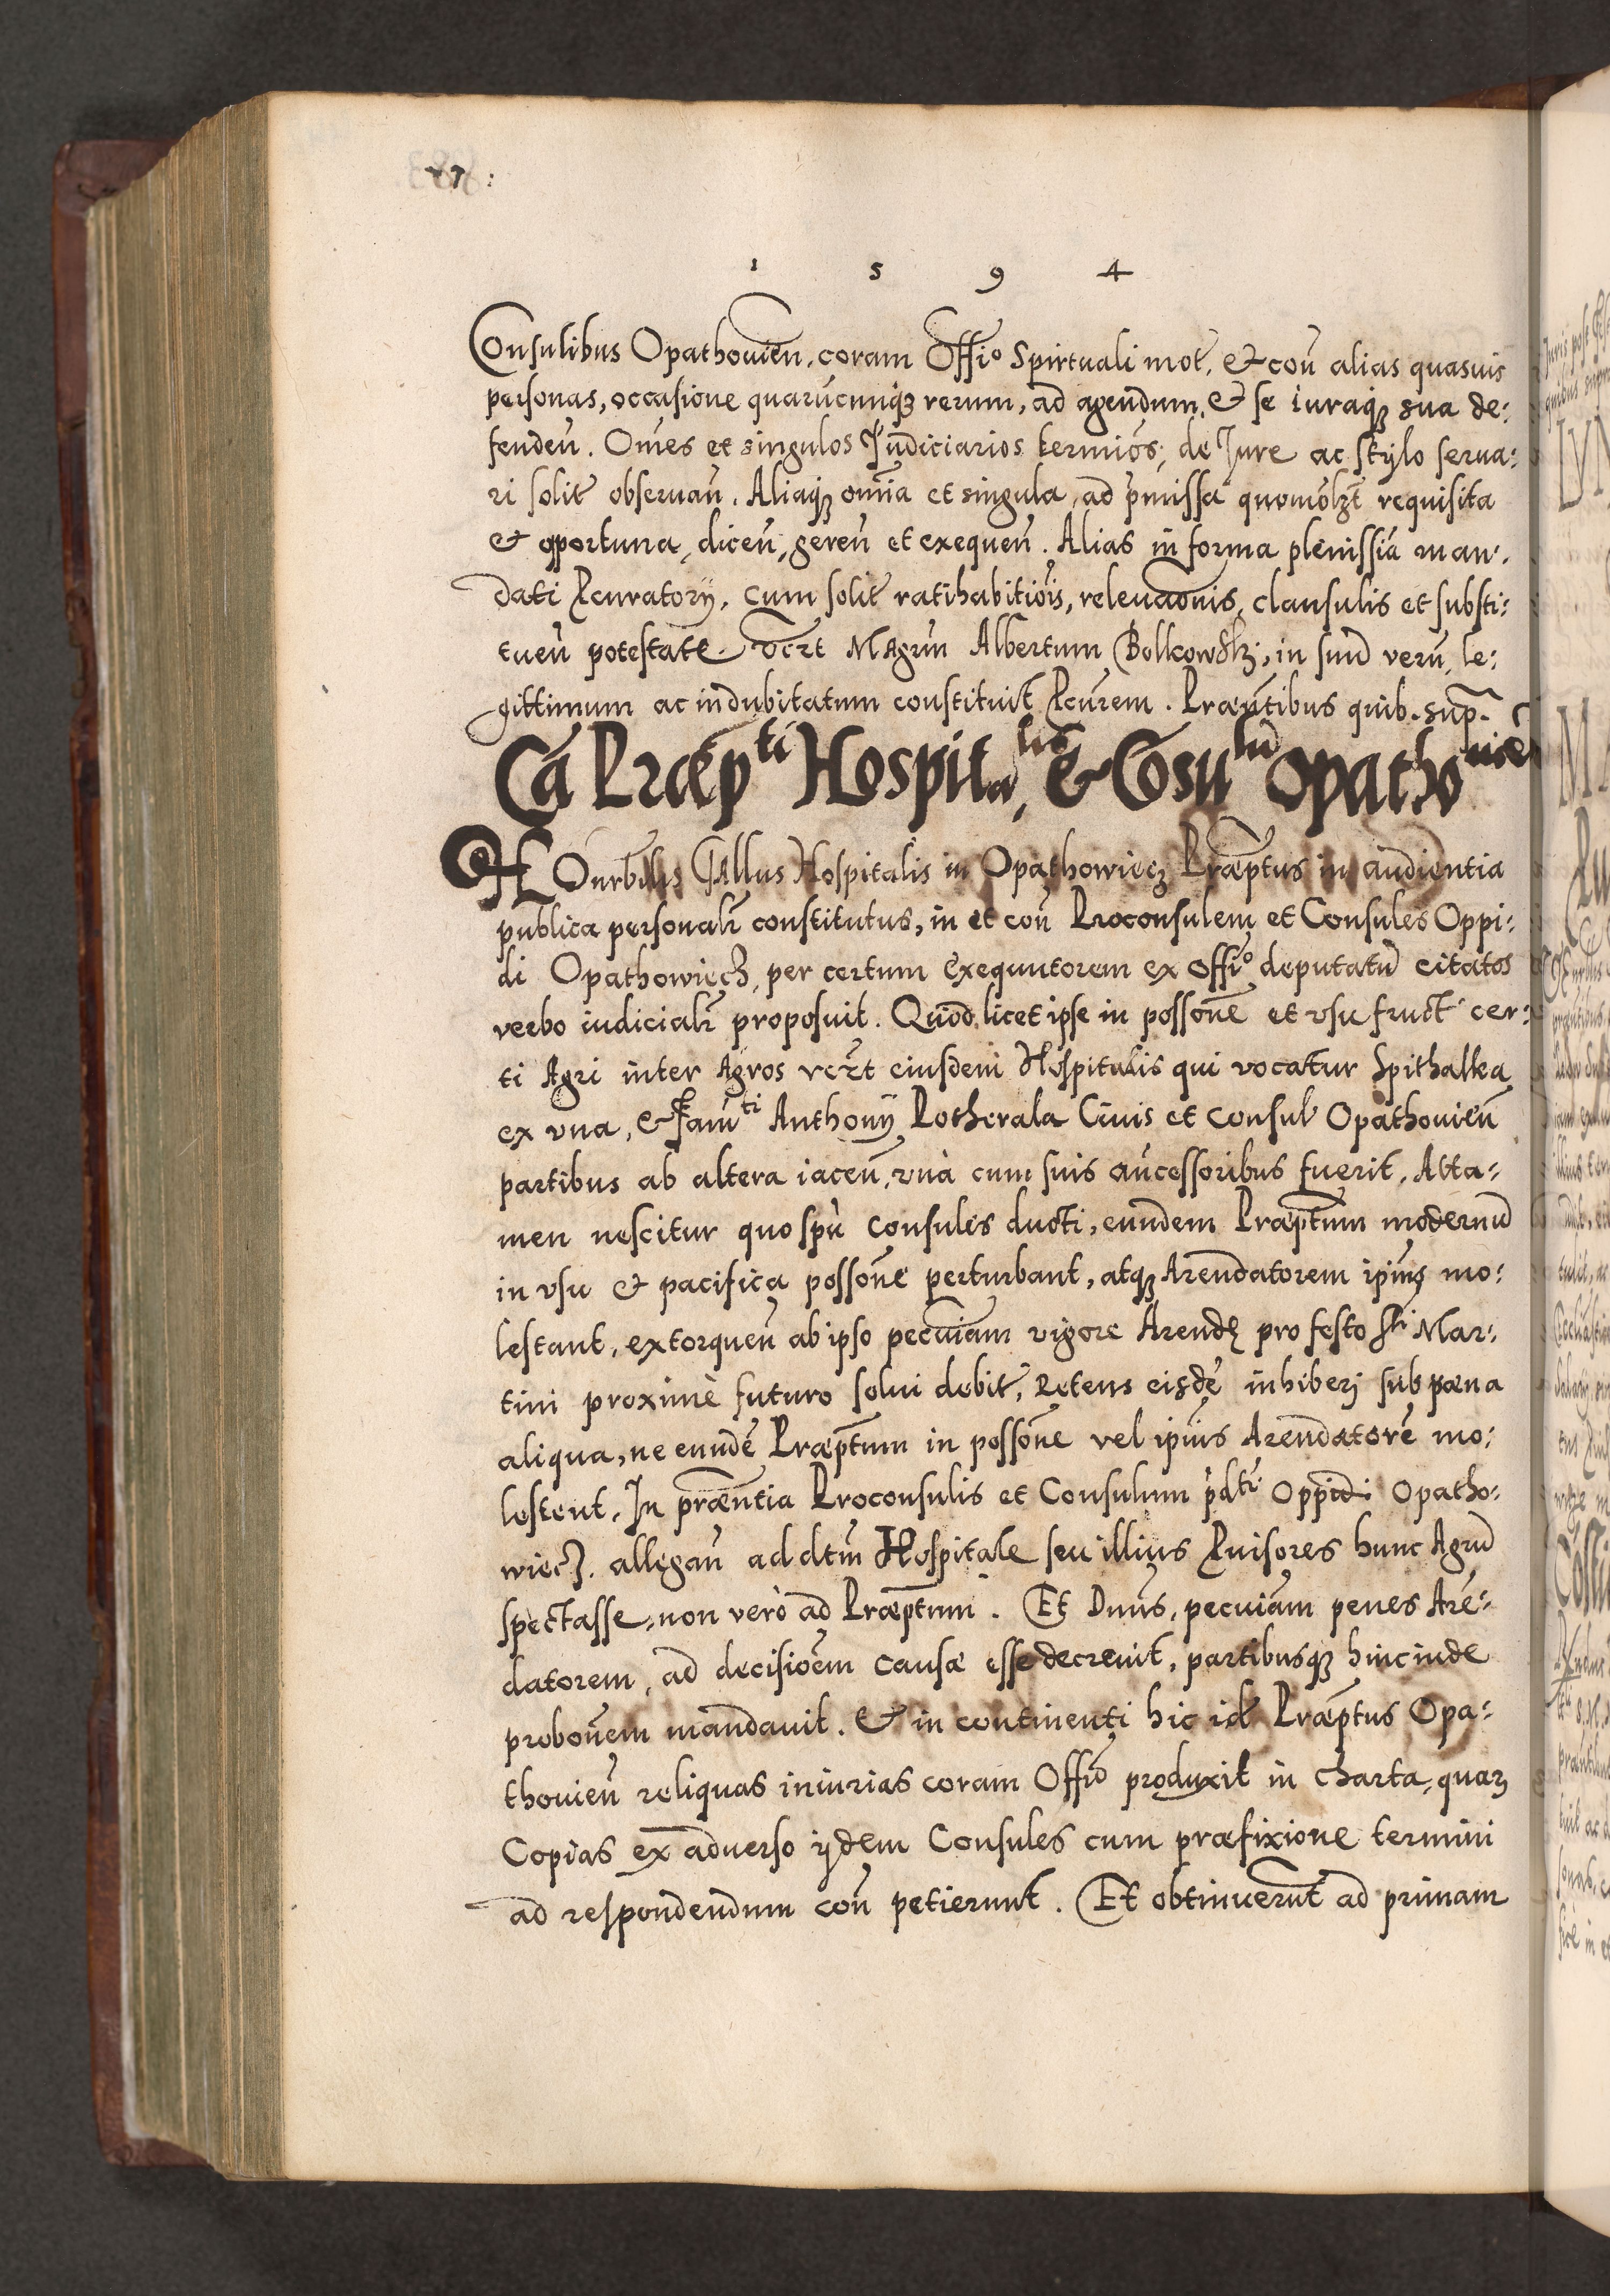 1 5 9 4
Consulibus Opathouien̄. coram Offio Spirtuali mot. et con̄ alias quasuis
personas, occasione quarūcumqȝ rerum, ad agendum, et se iuraqȝ sua de:
fenden̄. Om̄es et singulos Judiciarios term̄ios, de Jure ac stylo serua:
ri solit observan̄. Aliaqȝ om̄ia et singula, ad p̄missa quomolȝt requisita
et oportuna, dicen̄, geren̄ et exequen̄. Alias in forma plenissia man:
dati Pcuratorij. cum solit ratihabitiōis, releuaōnis, clausulis et substi:
tuen̄ potestate. Magrm̄ Albertum Bolkowskȝ, in suū verū, le:
gittimum ac indubitatum constituit Pcūrem. Præn̄tibus quib. sup.
Cā Præpti Hospitalis et Cōsulū Opathouien̄
HOnrbilis Gallus Hospitalis in Opathowiecȝ Præp̄tus in audientia
publica personalr constitutus, in et con̄ Proconsulem et Consules Oppi:
di Opathowiecȝ, per certum Exequutorem ex offio deputatū citatos
verbo iudicialr proposuit. Quod licet ipse in possōne et vsu fruct cer:
ti Agri inter Agros eiusdem Hospitalis qui vocatur Spithalka
ex vna, et Fam̄ti Anthonij Potherala Ciuis et Consul Opathouien̄
partibus ab altera iacen̄, vnà cum suis ancessoribus fuerit, Atta:
men nescitur quo spū consules ducti, eundem Præp̄tum modernū
in vsu et pacifica possōne perturbant, atqȝ Arendatorem ip̄ius mo:
lestant, extorquen̄ ab ipso pecuniam vigore Arendę pro festo Sti Mar:
tini proximè futuro solui debit, Petens eisdē inhiberi sub pœna
aliqua, ne eundē Præp̄tum in possōne vel ip̄ius Arendatorē mo:
lestent. In præn̄tia Proconsulis et Consulum p̄dti Oppidi Opatho:
wiecȝ. allegan̄ ad dtm̄ Hospitale seu illius Puisores hunc Agrū
spectasse, non verò ad Præp̄tum. Et Dnūs, pecuiam penes Arē:
datorem, ad decisiōem causæ esse decreuit, partibusqȝ hincinde
probōnem mandauit. Et in continenti hic idē Præp̄tus Opa:
thouien̄ reliquas iniurias coram Offio produxit in charta, quarȝ
Copias ex aduerso ijdem Consules cum præfixione termini
ad respondendum con̄ petierunt. Et obtinuerūt ad primam